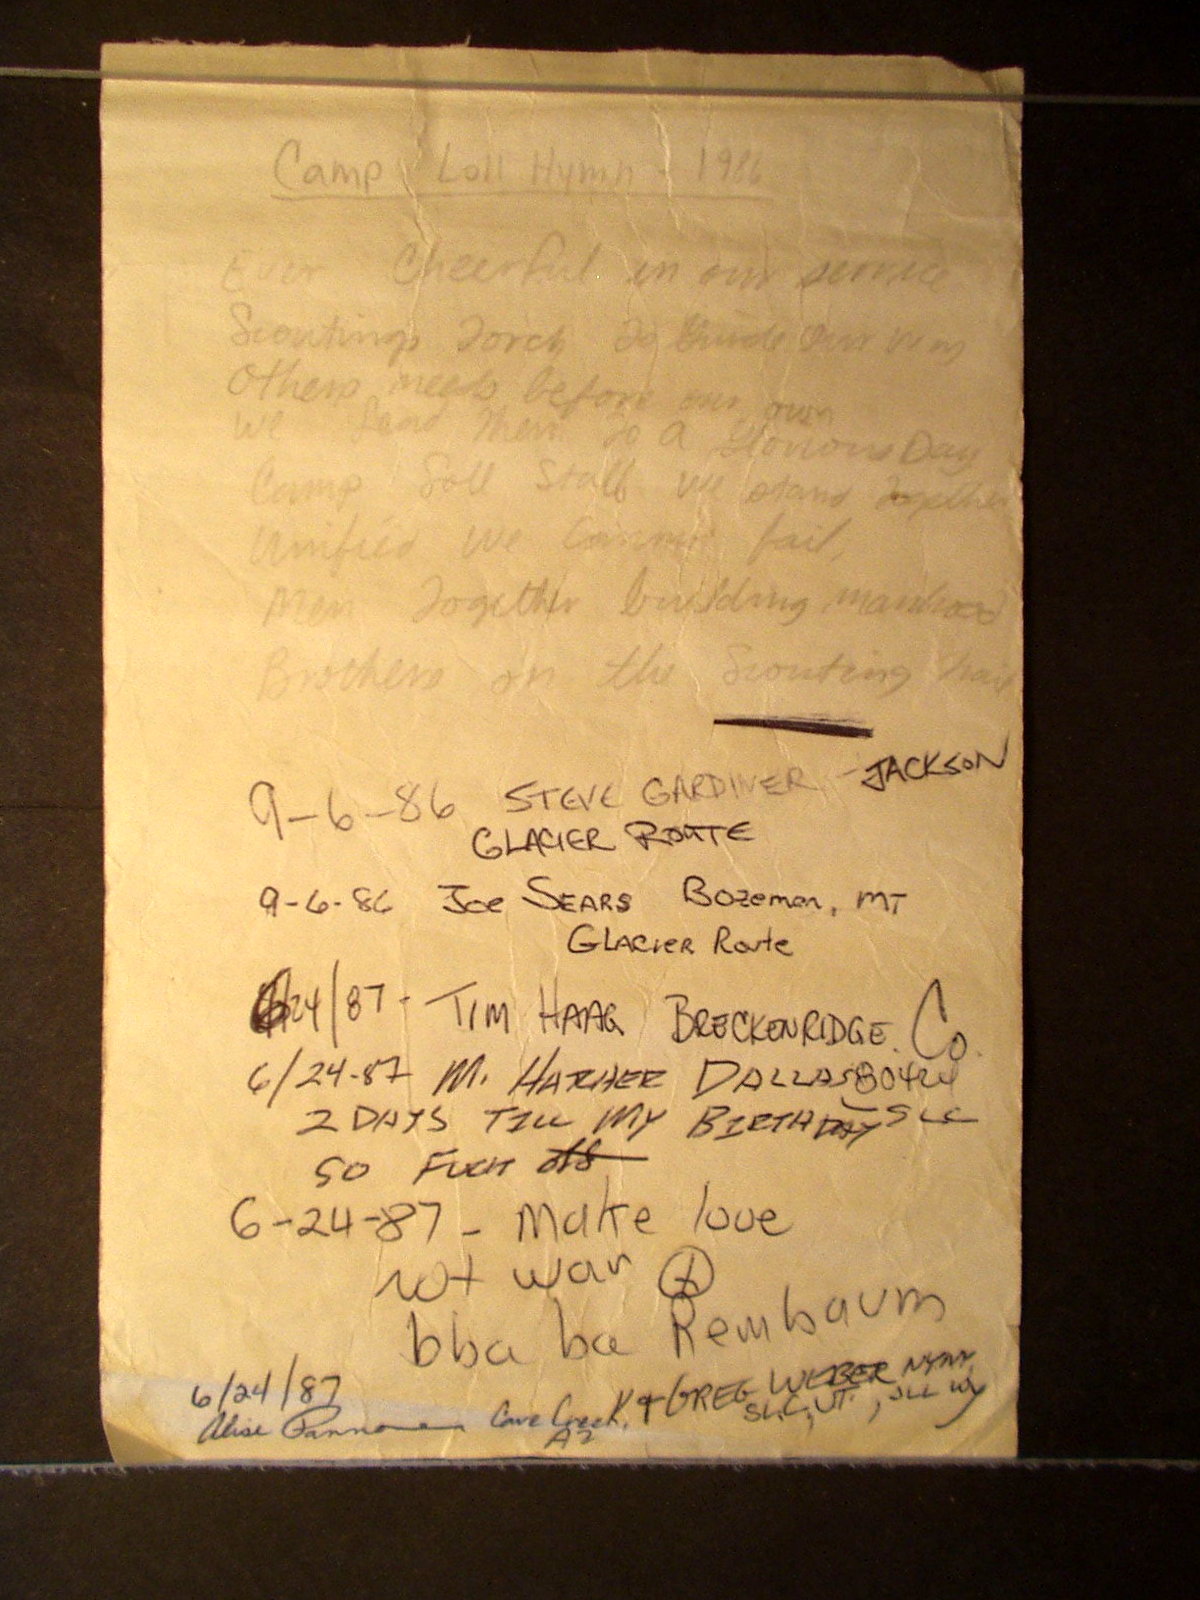 Camp Loll Hymn - 1986
Ever Cheerful in our service
Scoutings Torch to Guide Our Way
Others needs before our own
We Lead Them To A Glorious Day
Camp Loll Staff we stand together
Unified we cannot fail,
Men Together building manhood
Brothers on the Scouting trail
9-6-86 STEVE GARDINER - JACKSON
GLACIER ROUTE
9-6-86 Joe SEARS Bozeman, MT
GLACIER Route
6/24/87 - TIM HAAG BRECKENRIDGE. Co.
80424
6/24-87 M. DALLAS SLC
2 DAYS TILL MY BIRTHDAY
SO FUCK off
6-24-87 - Make love
not war
bba ba Rembaum
6/24/87
Alise Cave Creek, AZ
GREG WEBER
SLC, UT.